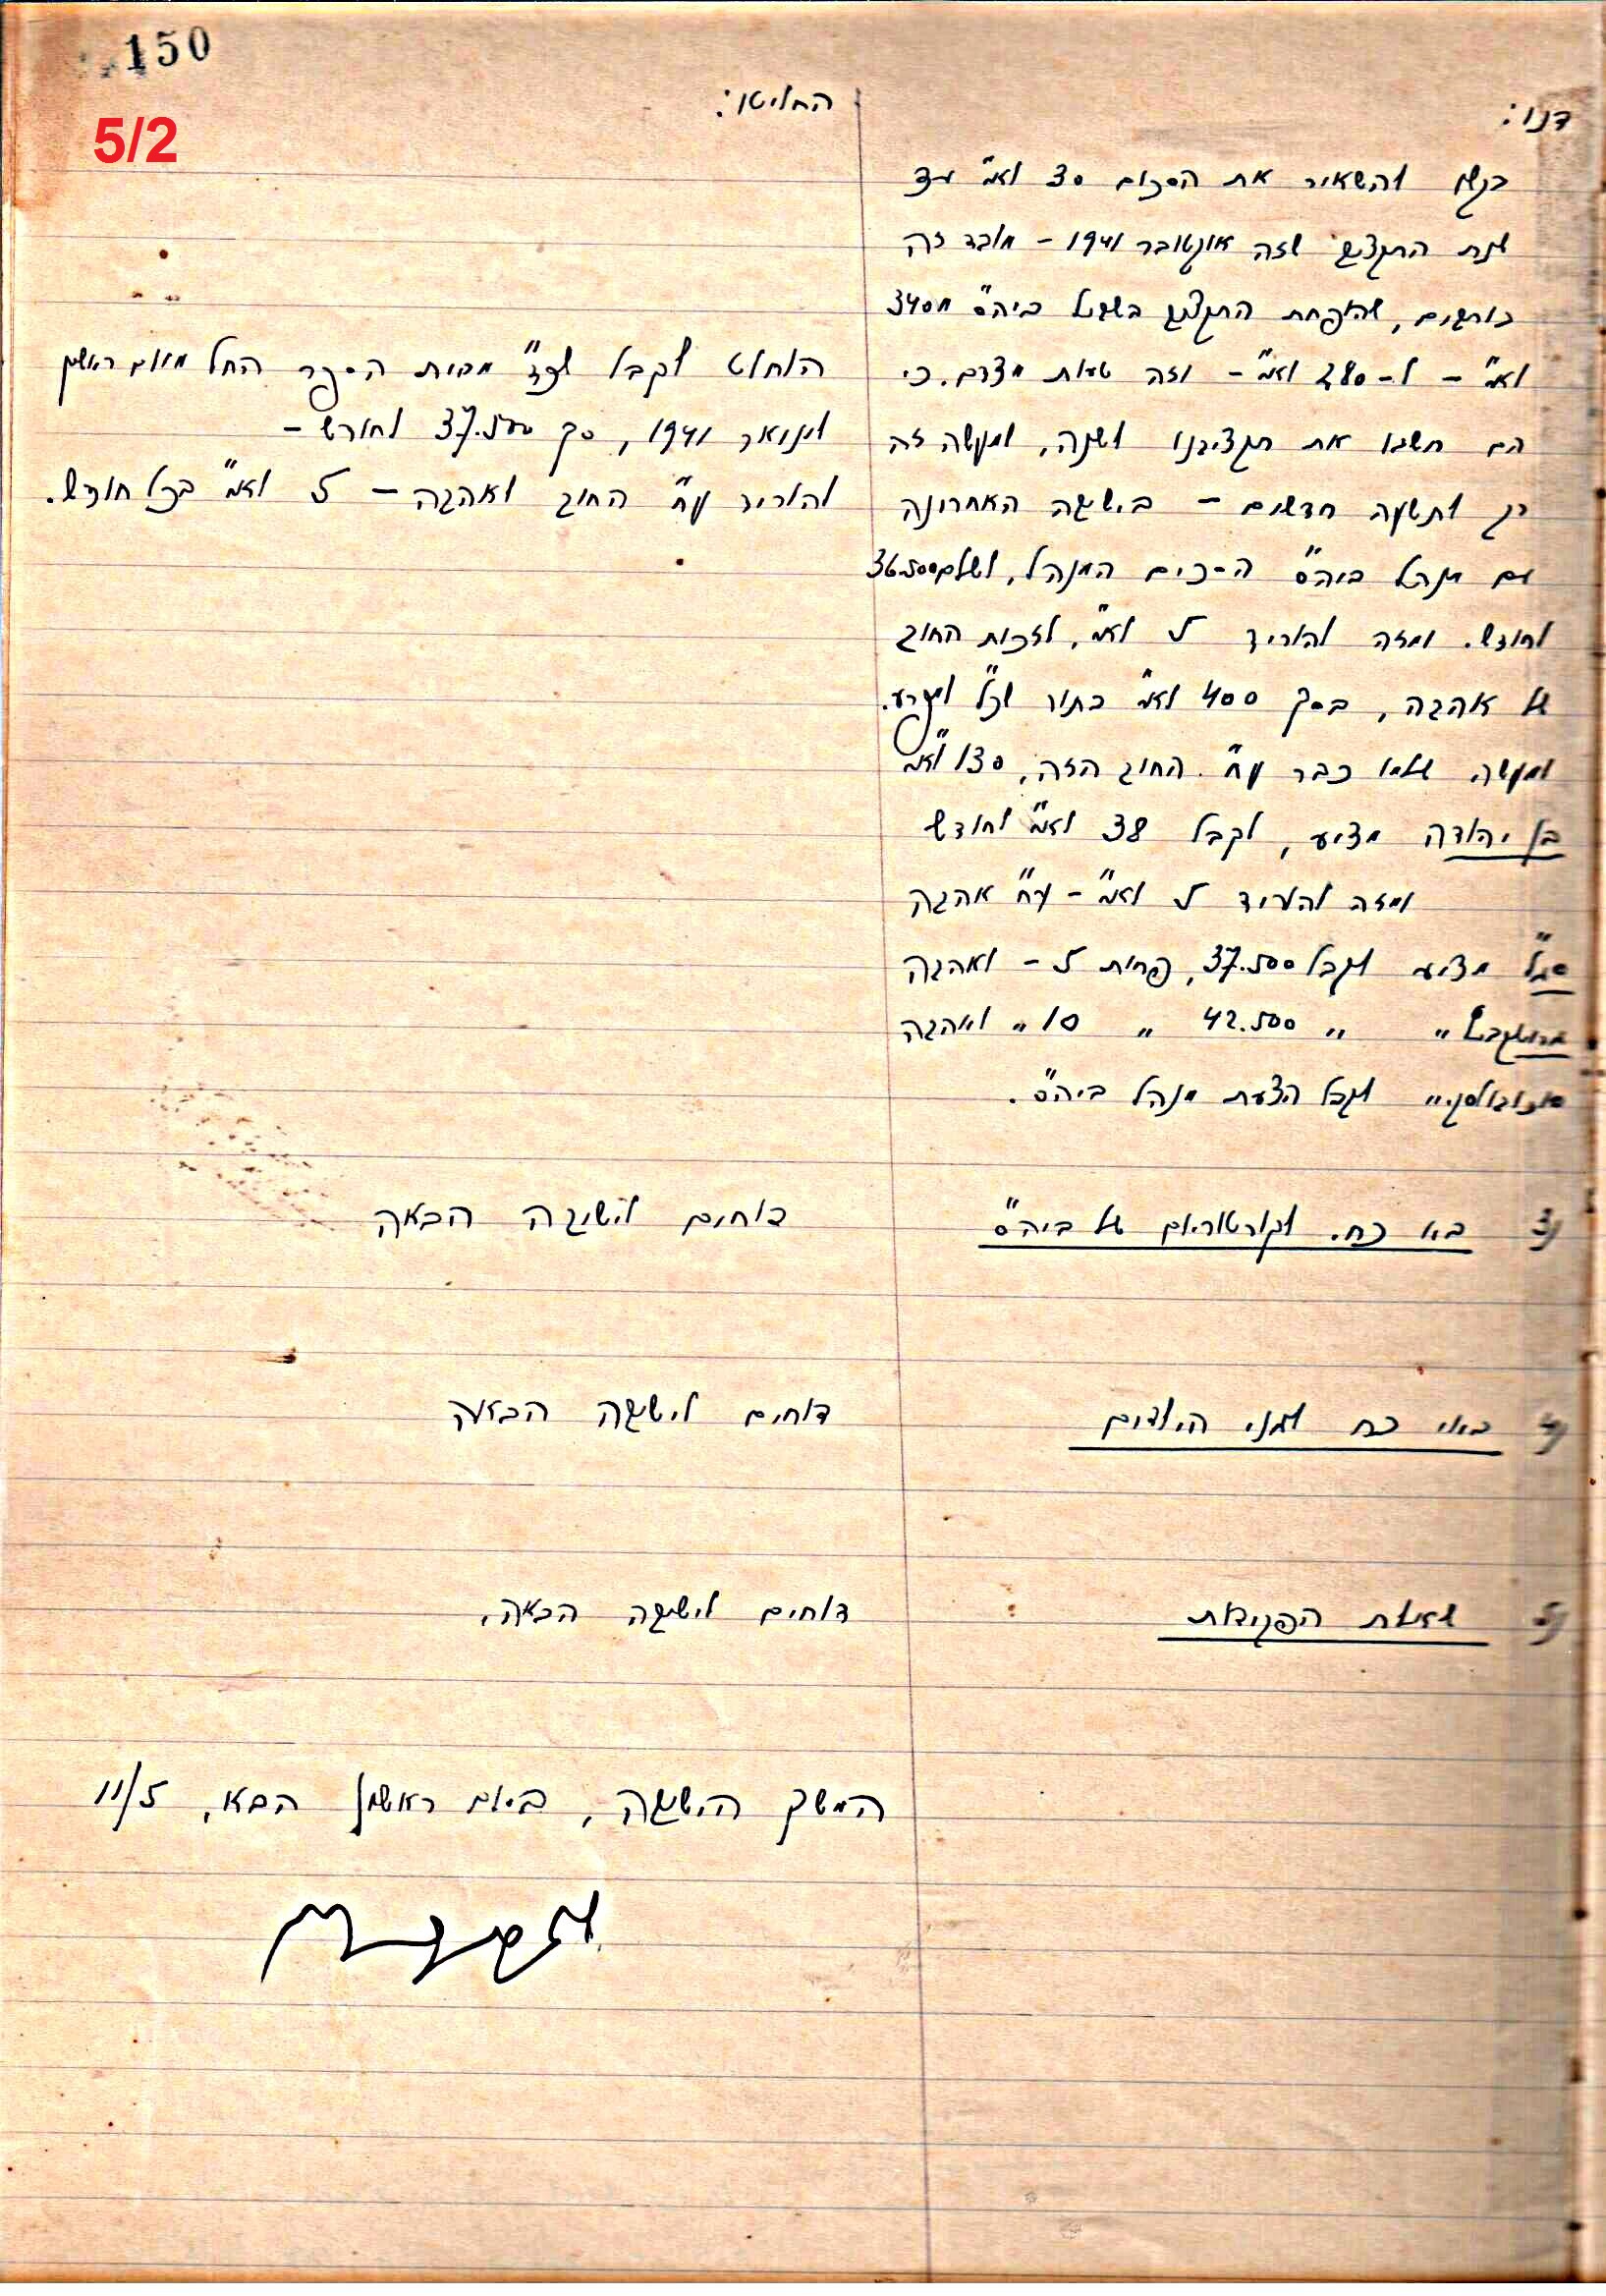 150
5/2
דנו:
בקשן להשאיר את הסכום 30 לאמ" עד
שנת התקציב שזה אוקטובר 1941 - מלבד זה
כותבים, שהופחת התקציב בשביל ביה"ס מ340
לאמ" - ל-280 לאמ" - וזה טעות מצדם. כי
הם חשבו את תקציבנו לשנה, ומעשה זה
רק לתשעה חדשים - בישיבה האחרונה
עם מנהל ביה"ס הסכים המנהל, לשלם 36.500
לחודש. ומזה להוריד 5 לאמ", לזכות החוב
של אהבה, בסך 400 לאמ"
ומעשה שלמו כבר ע"ח החוב הזה, 130 לאמ"
בן יהודה מציע, לקבל 38 לאמ" לחודש
ומזה להוריד 5 לאמ" - ע"ח אהבה
סג"ל מציע לקבל 37.500, פחות 5 - לאהבה
" " 42.500 " 10 " לאהבה
" לקבל הצעת מנהל ביה"ס.
3) בא כח. לקורטוריום של ביה"ס
4) באי כח לגני הילדים
5) שאלת הפקידות
החליטו:
הוחלט לקבל מבית הספר החל מיום ראשון
לינואר 1941, סך 37.500 לחודש -
להוריד ע"ח החוב לאהבה - 5 לאמ" בכל חודש.
דוחים לישיבה הבאה
דוחים לישיבה הבאה
דוחים לישיבה הבאה.
המשך הישיבה, ביום ראשון הבא, 11/5